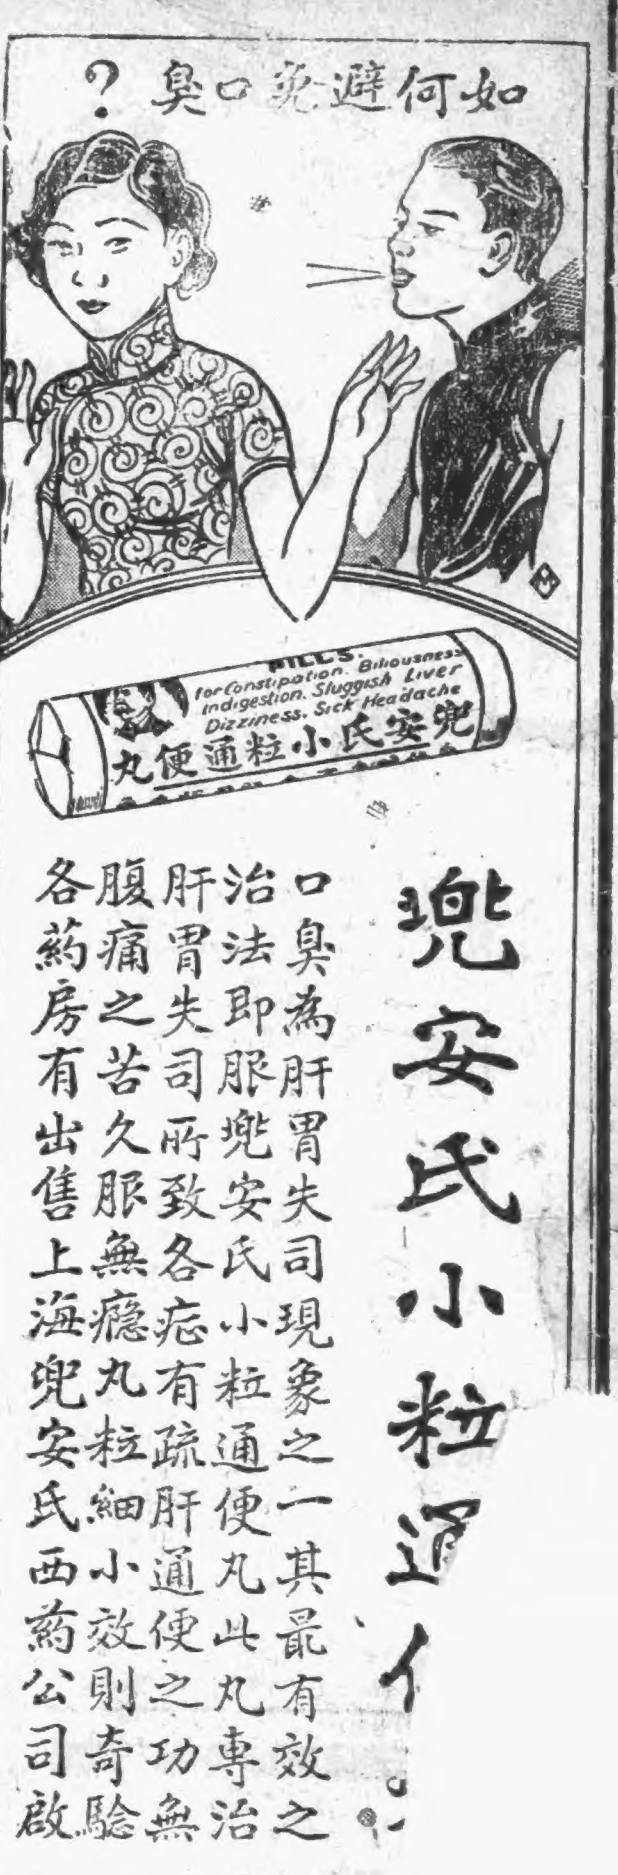 如何避免口臭?
PILLS.
for Constipation. Biliousness
Indigestion. Sluggish Liver
Dizziness. Sick Headache
兜安氏小粒通便丸
兜安氏小粒通
口臭為肝胃失司現象之一其最有效之
治法即服兜安氏小粒通便丸此丸專治
肝胃失司所致各症有疏肝通便之功無
腹痛之苦久服無癮丸粒細小效則奇驗
各葯房有出售上海兜安氏西葯公司啟